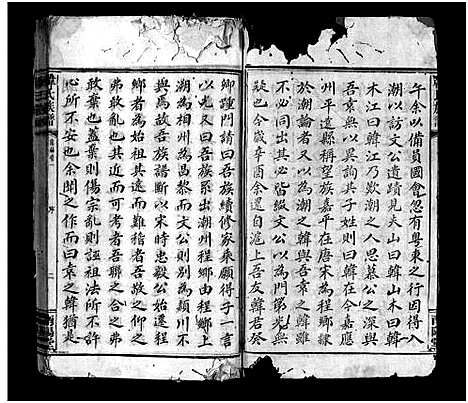 午余以備員國會忽有粵東之行因得入
潮以訪文公遺蹟見夫山曰韓山木曰韓
木江曰韓江乃歎潮之人思慕公之深與
吾袁無以異詢其子姓則曰韓在今嘉應
州平遠縣稱望族嘉平在唐宋為程鄉隸
於潮論者又以宋時吾袁之韓與潮之韓
不必同出其必皆綴文公以為門第光無
疑也今歲辛酉余還自滬上吾友韓君癸
卿踵門請曰吾族續修家乘願得子一言
以光又曰吾族系出潮州程鄉由程鄉上
溯為相州為昌黎文公則別為潁川不可
考者吾族譜斷以宋時忠獻公始遷程
鄉者為始祖其遠而難稽者敬之仰之
弗敢亂也其近而可考者吾聯之合之弗
敢棄也蓋棄則傷宗亂則誣祖禮法所不許
心所不安也余聞之作而曰袁之韓猶兆